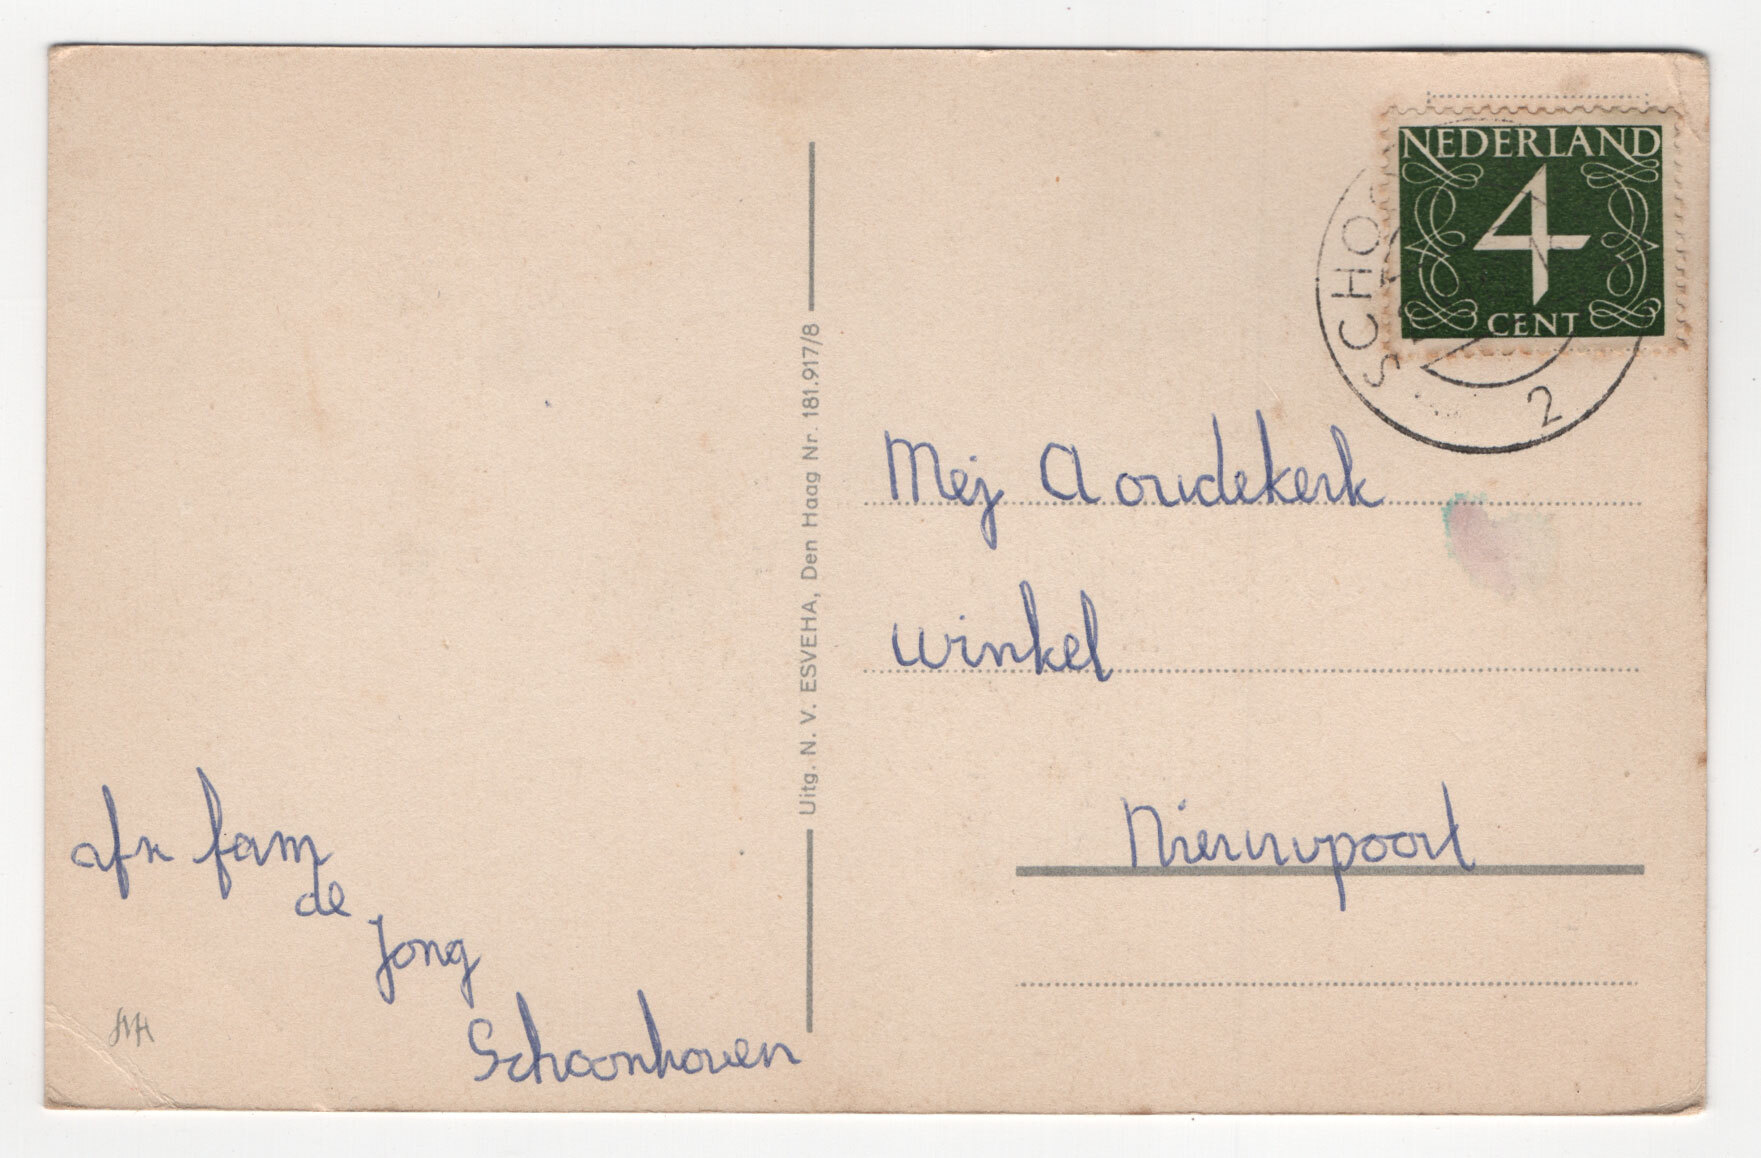 NEDERLAND
4
CENT
SCHOO
2
Uitg. N. V. ESVEHA, Den Haag Nr. 181.917/8
Mej A oudekerk
winkel
Nieuwpoort
afz fam
de
Jong
Schoonhoven